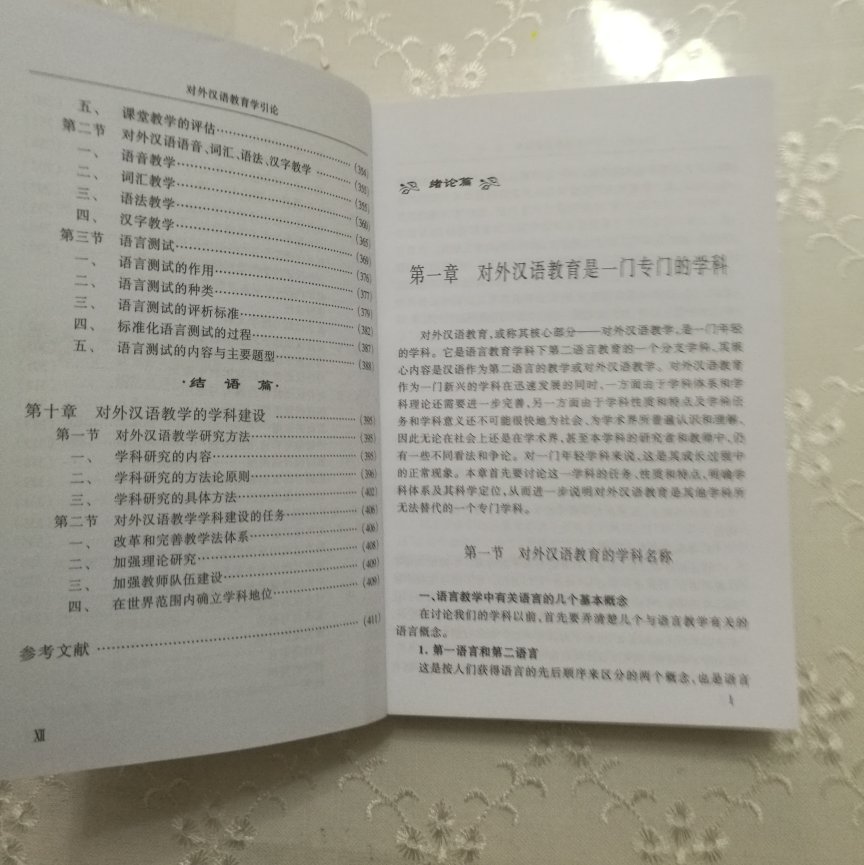 对外汉语教育学引论
五、 课堂教学的评估
第二节 对外汉语语音、词汇、语法、汉字教学 (354)
一、 语音教学 (355)
二、 词汇教学
三、 语法教学 (360)
四、 汉字教学 (365)
第三节 语言测试 (369)
一、 语言测试的作用 (376)
二、 语言测试的种类 (377)
三、 语言测试的评析标准 (379)
四、 标准化语言测试的过程 (382)
五、 语言测试的内容与主要题型 (387)
(388)
·结 语 篇·
第十章 对外汉语教学的学科建设 (395)
第一节 对外汉语教学研究方法 (395)
一、 学科研究的内容 (395)
二、 学科研究的方法论原则 (396)
三、 学科研究的具体方法 (402)
第二节 对外汉语教学学科建设的任务 (406)
一、 改革和完善教学法体系 (406)
二、 加强理论研究 (408)
三、 加强教师队伍建设 (409)
四、 在世界范围内确立学科地位 (409)
参考文献 (411)
XII
绪论篇
第一章 对外汉语教育是一门专门的学科
对外汉语教育,或称其核心部分——对外汉语教学,是一门年轻
的学科。它是语言教育学科下第二语言教育的一个分支学科,其核
心内容是汉语作为第二语言的教学或对外汉语教学。对外汉语教育
作为一门新兴的学科在迅速发展的同时,一方面由于学科体系和学
科理论还需要进一步完善,另一方面由于学科性质和特点及学科任
务和学科意义还不可能很快地为社会、为学术界所普遍认识和理解,
因此无论在社会上还是在学术界,甚至本学科的研究者和教师中,仍
有一些不同看法和争论。对一门年轻学科来说,这是其成长过程中
的正常现象。本章首先要讨论这一学科的任务、性质和特点,明确学
科体系及其科学定位,从而进一步说明对外汉语教育是其他学科所
无法替代的一个专门学科。
第一节 对外汉语教育的学科名称
一、语言教学中有关语言的几个基本概念
在讨论我们的学科以前,首先要弄清楚几个与语言教学有关的
语言概念。
1. 第一语言和第二语言
这是按人们获得语言的先后顺序来区分的两个概念,也是语言
1